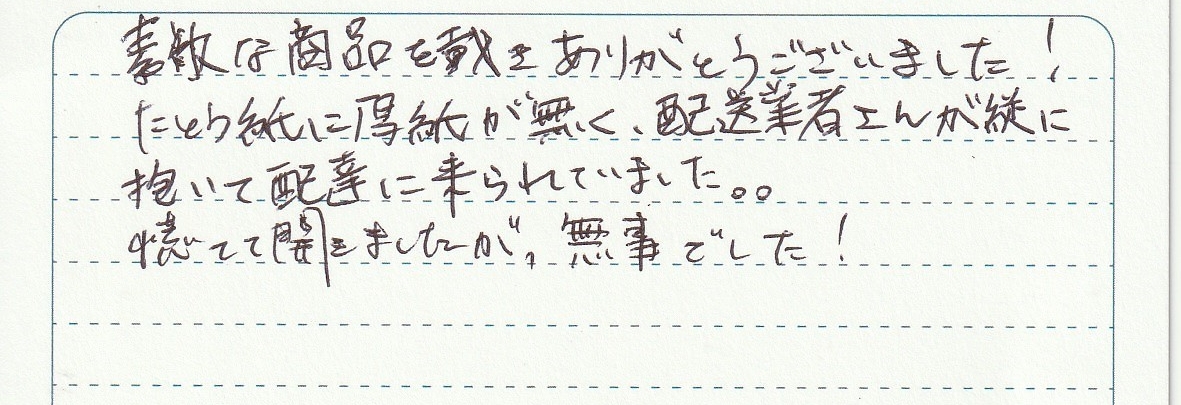 素敵な商品を戴きありがとうございました!
たとう紙に厚紙が無く、配送業者さんが縦に
抱いて配達に来られていました。。
慌てて開きましたが、無事でした!